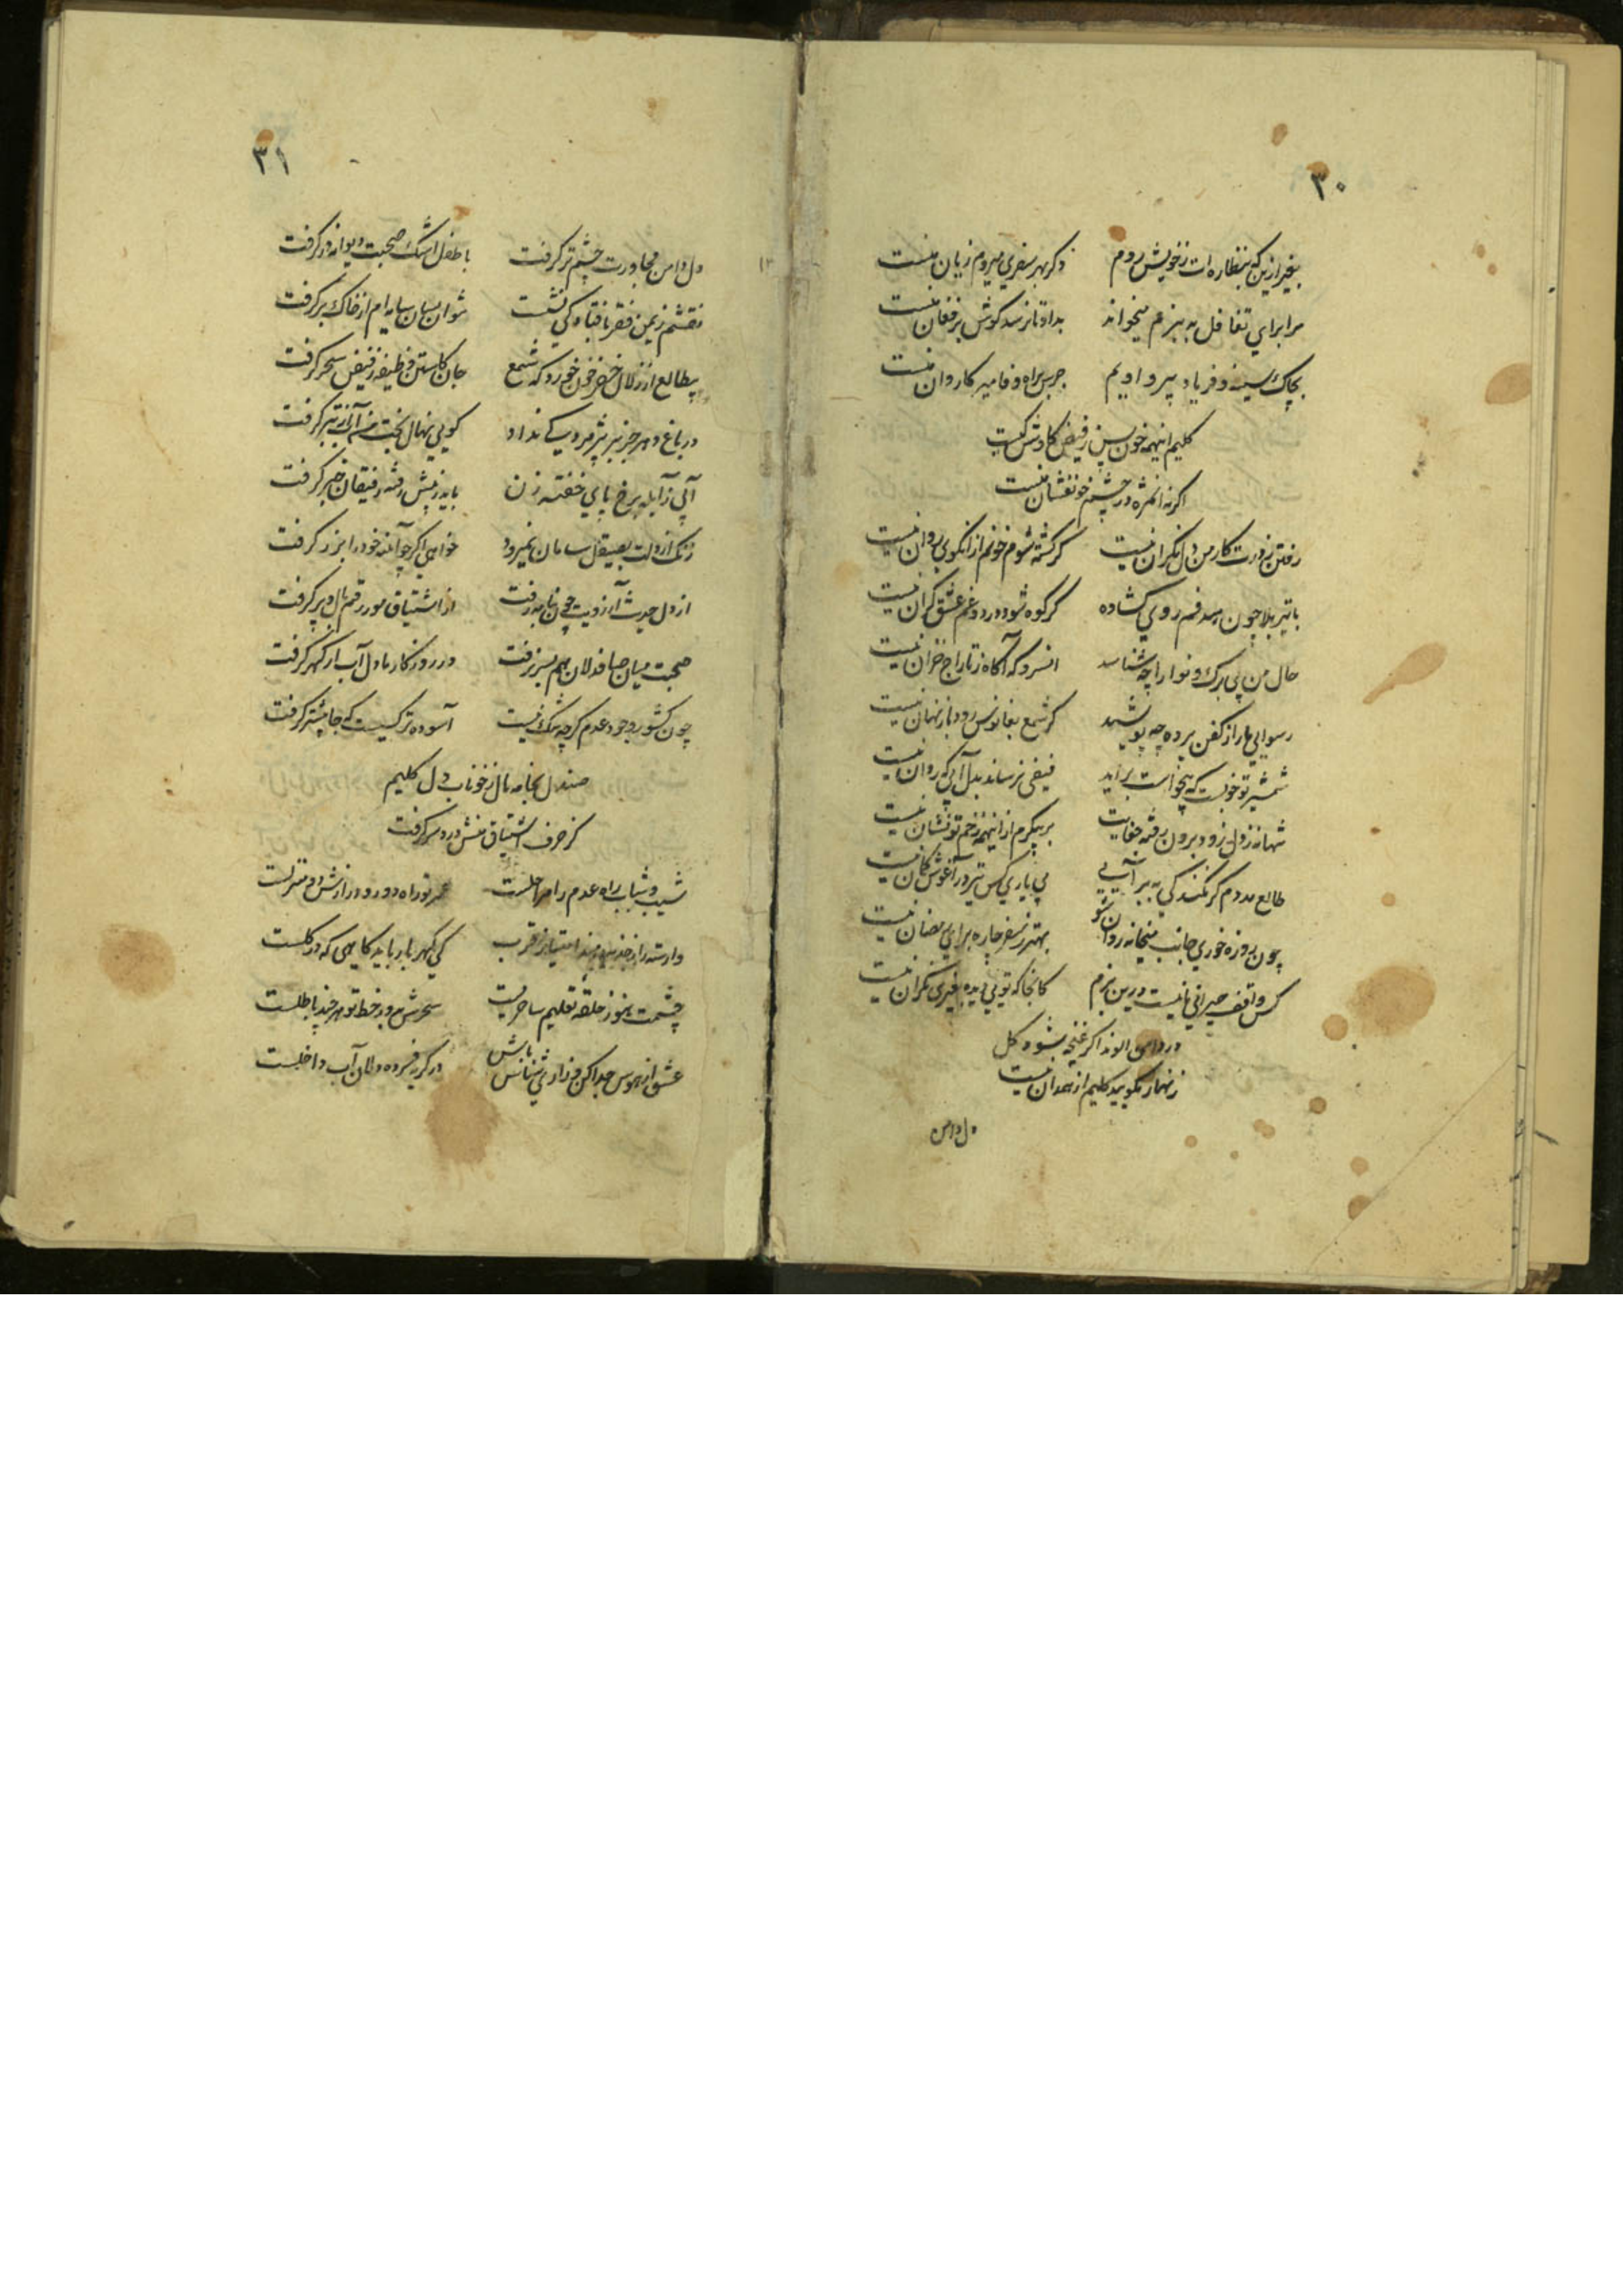 ۳۰
بغیر ازین که بنظاره ات ز خویش روم
دگر بهر سفری میروم زیان منست
مرا برای تغافل به بزم میخواند
بداد تا نرسد گوش بر فغان منست
بچاک سینه و فریاد پیرو اویم
جرس براه وفا میر کاروان منست
کلیم اینهمه خون بین ز فیض کاوش کیست
اگر نه آن مژه در چشم خونفشان منست
رفتن ز درت کار من دل نگران نیست
گر کشته شوم خونم از آنکوی روان نیست
با تیر بلا چون هدفم روی گشاده
گر کوه شود درد و غم عشق گران نیست
حال من بی برگ و نوا را چه شناسد
آنسرو که آگاه ز تاراج خزان نیست
رسوایی ما را ز کفن پرده چه پوشد
گر شمع بفانوس رود باز نهان نیست
شمشیر تو خوبست که بیخواست برآید
فیضی نرساند بدل آبی که روان نیست
تنها نه ز دل زود برون رفته خدنگت
بر پیکرم از اینهمه زخم تو نشان نیست
طالع مددم گر نکند کی به بر آیی
بی یاری کس تیر در آغوش کمان نیست
چون روزه خوری جانب میخانه روان شو
بهتر ز سفر چاره برای رمضان نیست
کس واقف حیرانی ما نیست درین بزم
کانجا که تویی دیده بغیری نگران نیست
در دامن الوند اگر غنچه شود گل
زنهار مگویید کلیم از همدان نیست
دل دامن
۳۱
دل دامن مجاورت چشم تر گرفت
با طفل اشک صحبت دیوانه در گرفت
نقشم ز یمن فقر بافتادگی نشست
نتوان بسان سایه ام از خاک بر گرفت
بیطالع از زلال خضر خون خورد که شمع
جان کاستن وظیفه ز فیض سحر گرفت
در باغ دهر جز بر پژمردگی نداد
گویی نهال بخت من آب از تبر گرفت
آبی ز آبله برخ پای خفته زن
باید ز پیش رفته رفیقان خبر گرفت
زنگ از دلت بصیقل سامان نمیرود
خواهی اگر چو آینه خود را بزر گرفت
از دل حدیث آرزویت چون بنامه رفت
از اشتیاق مور رقم بال و پر گرفت
صحبت میان صافدلان هم بسر نرفت
در روزگار ما دل آب از گهر گرفت
چون کشور وجود عدم گر چه تنگ نیست
آسوده تر کسیست که جا بیشتر گرفت
صندل بجامه مال ز خوناب دل کلیم
کز حرف اشتیاق منش درد سر گرفت
شیب و شباب راه عدم را مراحلست
عمر تو راه دور و درازش دو منزلست
وارسته را ز جذبه نبود امتیاز قرب
کی کهربا رباید کاهی که در گلست
چشمت هنوز حلقه تعلیم ساحریست
سحرش بدور خط تو هر چند باطلست
عشق از هوس جدا کن و زاری شناس باش
در گریه فسرده دلان آب داخلست